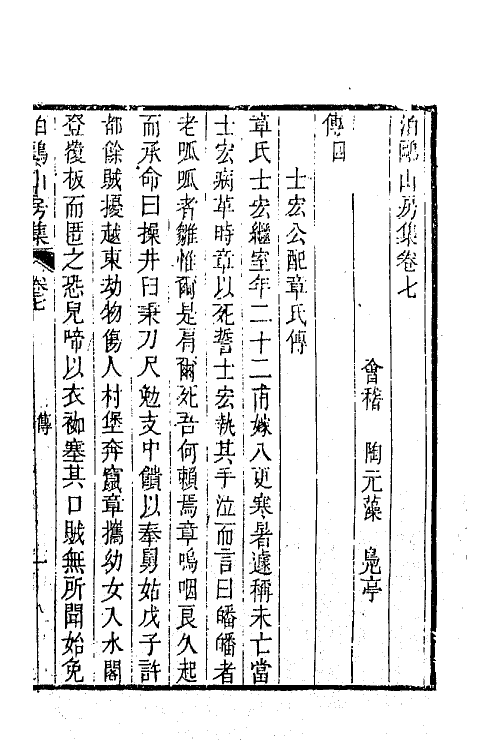 泊鷗山房集卷七
會稽 陶元藻 鳧亭
傳四
士宏公配章氏傳
章氏士宏繼室年二十二甫嫁八更寒暑遽稱未亡當
士宏病革時章以死誓士宏執其手泣而言曰皤皤者
老呱呱者雛惟爾是肩爾死吾何賴焉章嗚咽良久起
而承命曰操井臼秉刀尺勉支中饋以奉舅姑戊子許
都餘賊擾越東劫物傷人村堡奔竄章攜幼女入水閣
登複板而匿之恐兒啼以衣袽塞其口賊無所聞始免
泊鷗山房集 卷七 傳 一